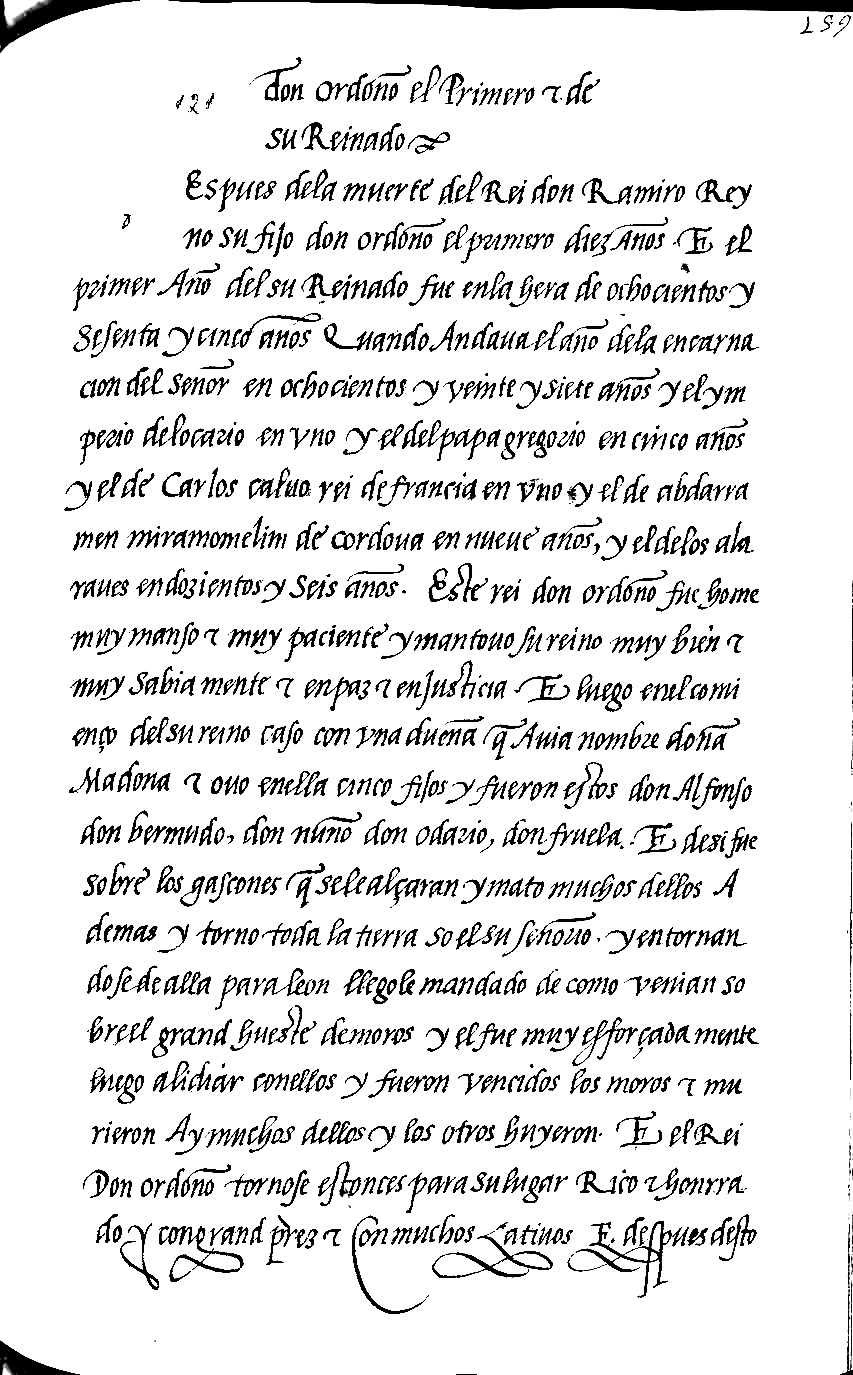 159
121 don ordoño el Primero τ de
su Reinado
Espues dela muerte del Rei don Ramiro Rey
d
no su fijo don ordoño el primero diez Años. E el
primer Año del su Reinado fue enla hera de ochocientos y
Sesenta y cinco años Quando Andaua el año dela encarna
cion del señor en ochocientos y veinte y siete años y el ym
perio delocario en vno y el del papa gregorio en cinco años
y el de Carlos caluo rei de francia en vno y el de abdarra
men miramomelim de cordoua en nueue años, y el delos ala
raues en dozientos y Seis años. Este rei don ordoño fue home
muy manso τ muy paciente y mantouo su reino muy bien τ
muy Sabia mente τ en paz τ en Justicia. E luego enel comi
enço del su reino caso con vna dueña q̃ Auia nombre doña
Madona τ ouo enella cinco fijos y fueron estos don Alfonso
don bermudo, don nuño don odario, don fruela. E desi fue
sobre los gascones q̃ sele alçaran y mato muchos dellos A
demas y torno toda la tierra so el su señorio. y en tornan
dose de alla para leon llegole mandado de como venian so
breel grand hueste de moros y el fue muy esforçada mente
luego a lidiar conellos y fueron vencidos los moros τ mu
rieron Ay muchos dellos y los otros huyeron. E el Rei
Don ordoño tornose estonces para su lugar Rico τ honrra
do y con grand prez τ Con muchos Catiuos E. despues desto